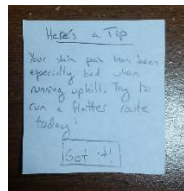 Here's a Tip
Your shin pain has been
especially bad when
running uphill. Try to
run a flatter route
today!
Got it!